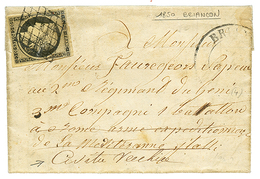 1850 BRIANÇON
Monsieur
Monsieur Fauregeon Sapeur
au 2me Régiment du Génie
3me Compagnie 1 Batallon
a Rome armée expéditionnaire
de la Méditerranée Italie
Civita Vecchia